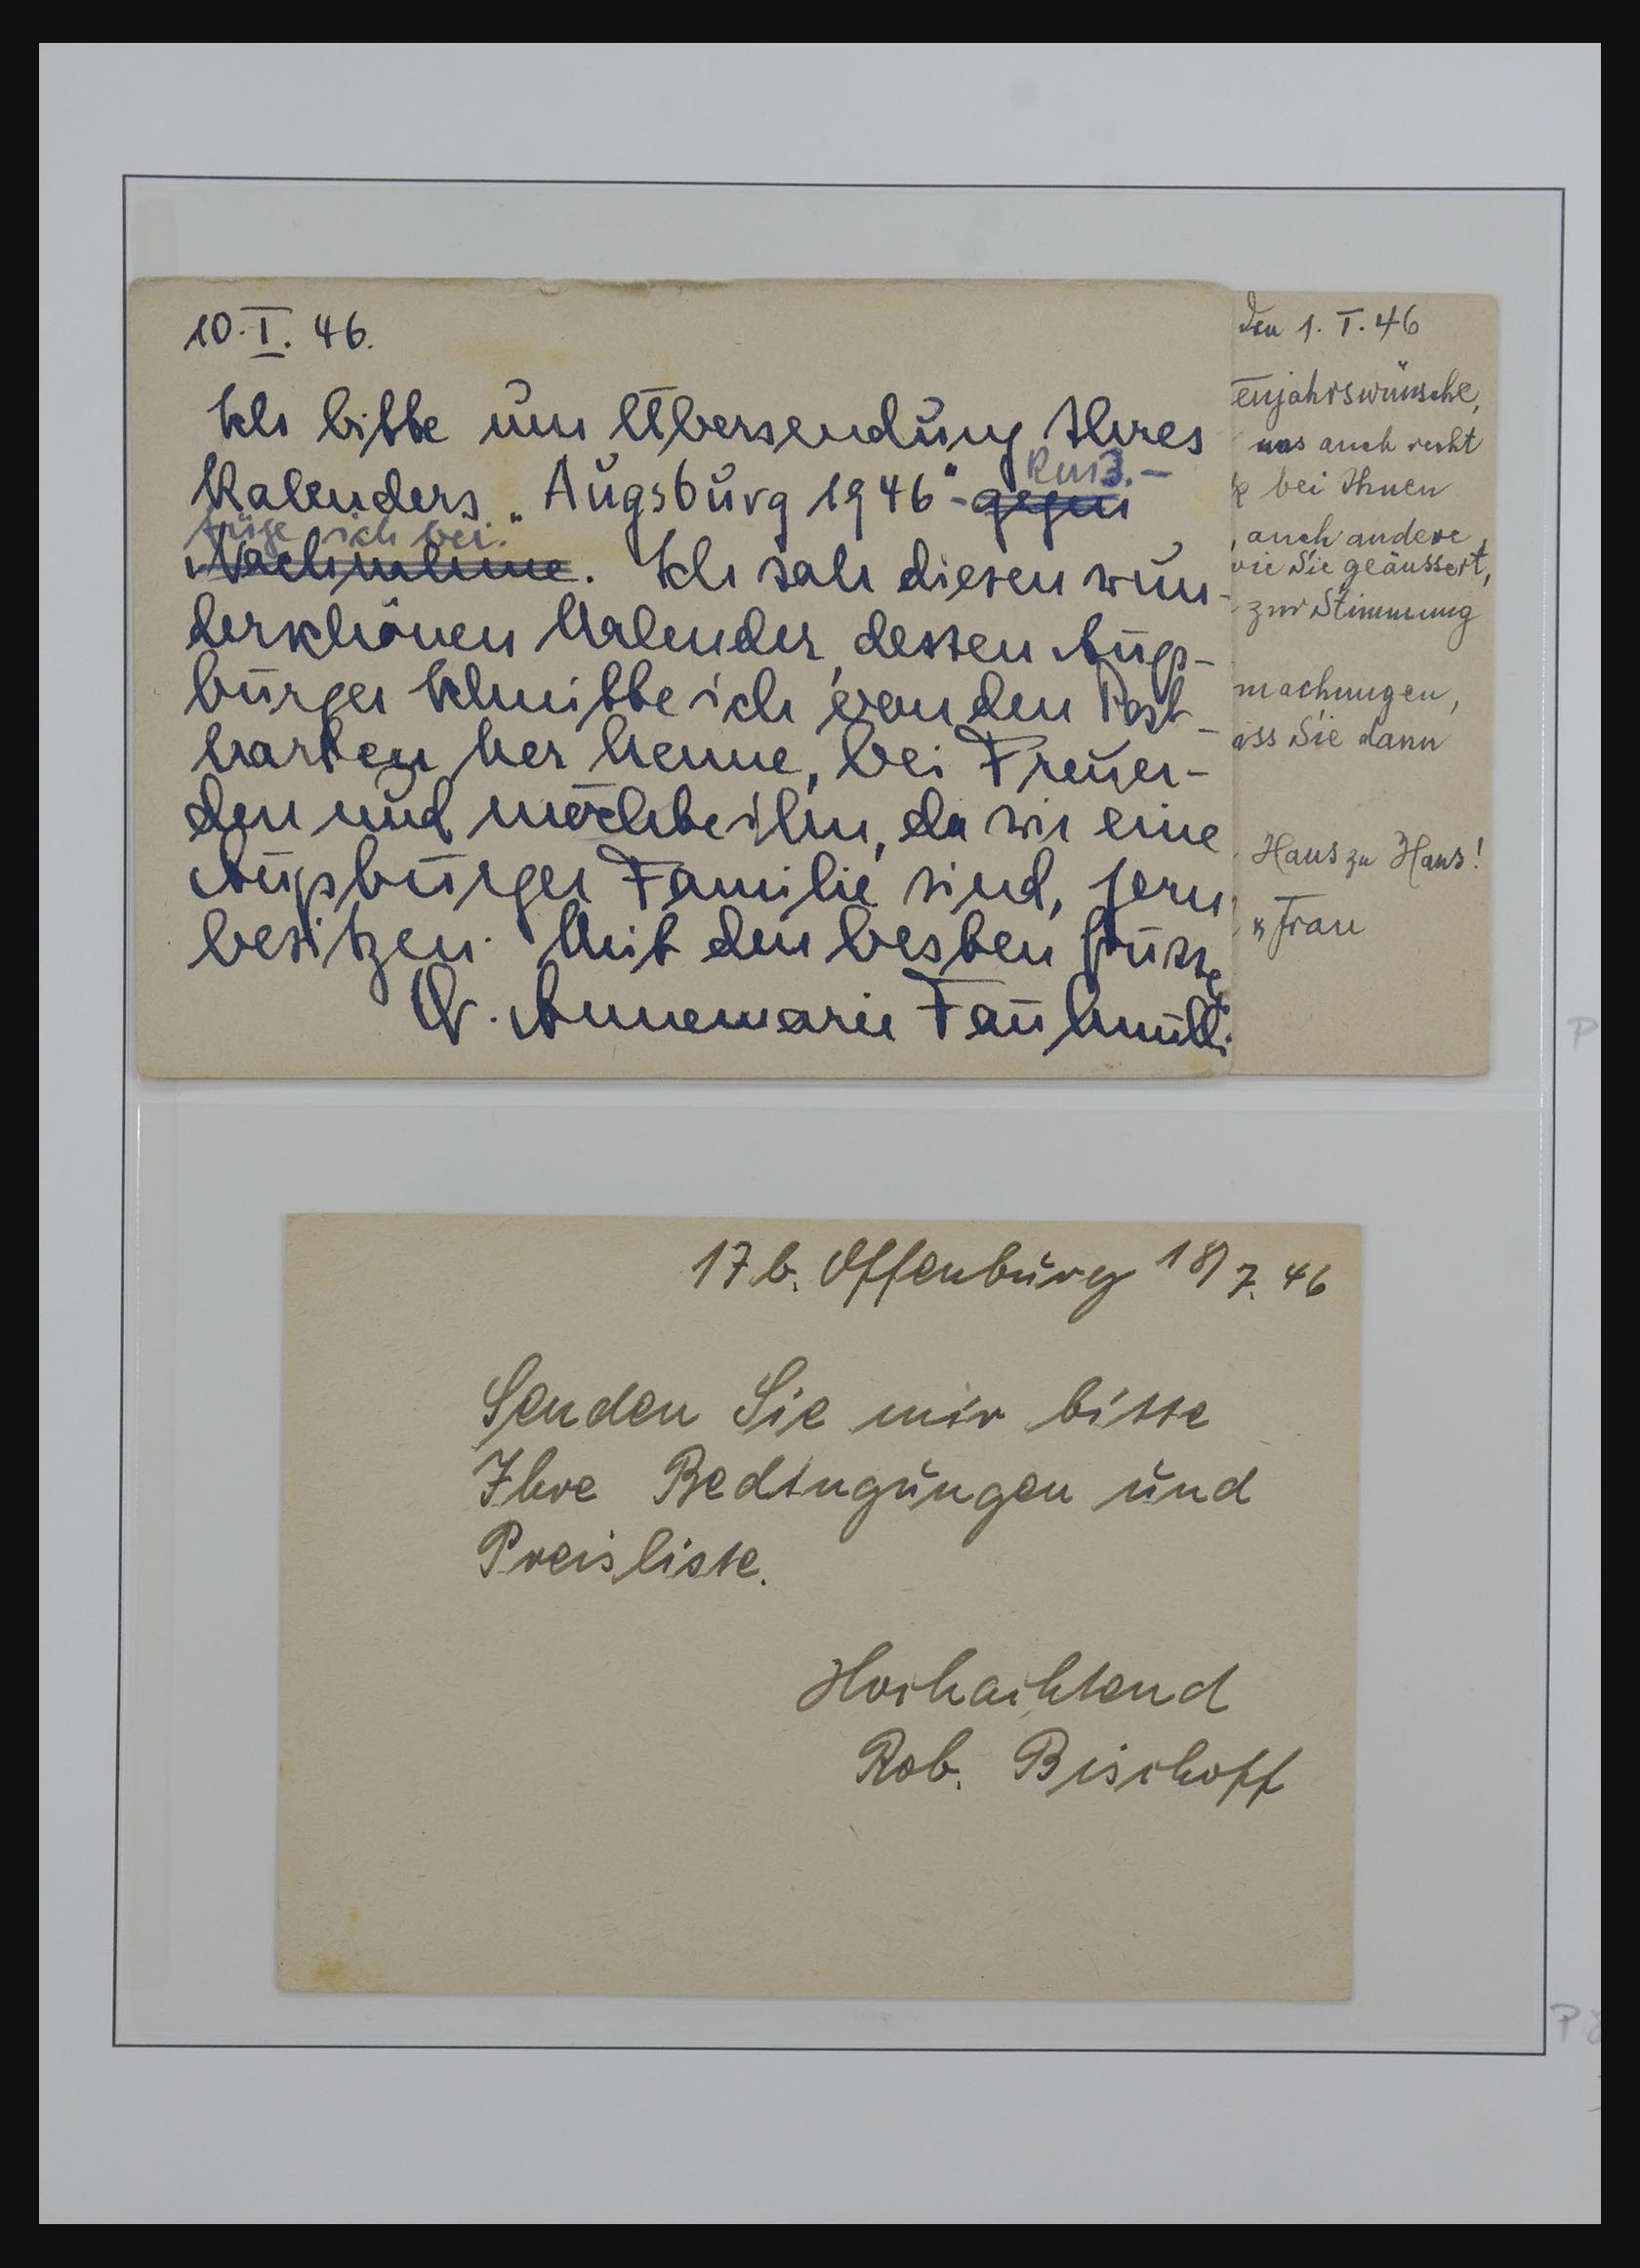 10. I. 46.
Ich bitte um Übersendung Ihres
Kalenders „Augsburg 1946“ - gegen
RM 3.-
füge ich bei.
Nachnahme. Ich sah diesen wun-
derschönen Kalender, dessen Augs-
burger Schnitte ich von den Post-
karten her kenne, bei Freun-
den und möchte ihn, da wir eine
Augsburger Familie sind, gern
besitzen. Mit den besten Grüsse
Annemarie
den 1. I. 46
eujahrswünsche,
uns auch recht
bei Ihnen
, auch andere
wie Sie geäussert,
zur Stimmung
machungen,
ass Sie dann
Haus zu Haus!
Frau
17 b. Offenburg 18/7. 46
Senden Sie mir bitte
Ihre Bedingungen und
Preisliste.
Hochachtend
Rob. Bischoff
P
P 8